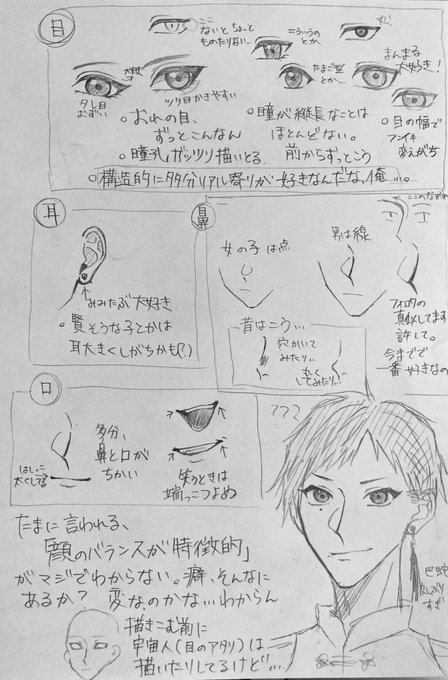 目
ここ
ないとちょっと
ものたりない…
こういうの
とか、
丸
まんまる
大好き!
大好き
タレ目
おずい
ツリ目かきやすい
たまご型
とか…
○おれの目、
ずっとこんなん
○瞳が縦長なことは
ほとんどない。
○目の幅で
フンイキ
変えがち
○瞳孔ガッツリ描いとる
前からずっとこう
○構造的に多分リアル寄りが好きなんだな、俺…。
耳
みみたぶ大好き
○賢そうな子とかは
耳大きくしがちかも(?)
鼻
女の子は点
男は線
ここのながれ
フォロワの
真似してます
許して。
今までで
一番好きなの
昔はこう…
穴かいて
みたり…
丸く
してみたり…
口
はしっこ
太くしてる
多分、
鼻と口が
ちかい
笑うときは
端っこつよめ
???
たまに言われる、
「顔のバランスが特徴的」
がマジでわからない。癖、そんなに
あるか? 変なのかな…わからん
描きこむ前に
宇宙人(目のアタリ)は
描いたりしてるけど…
巴蛇
久しぶり
すぎ